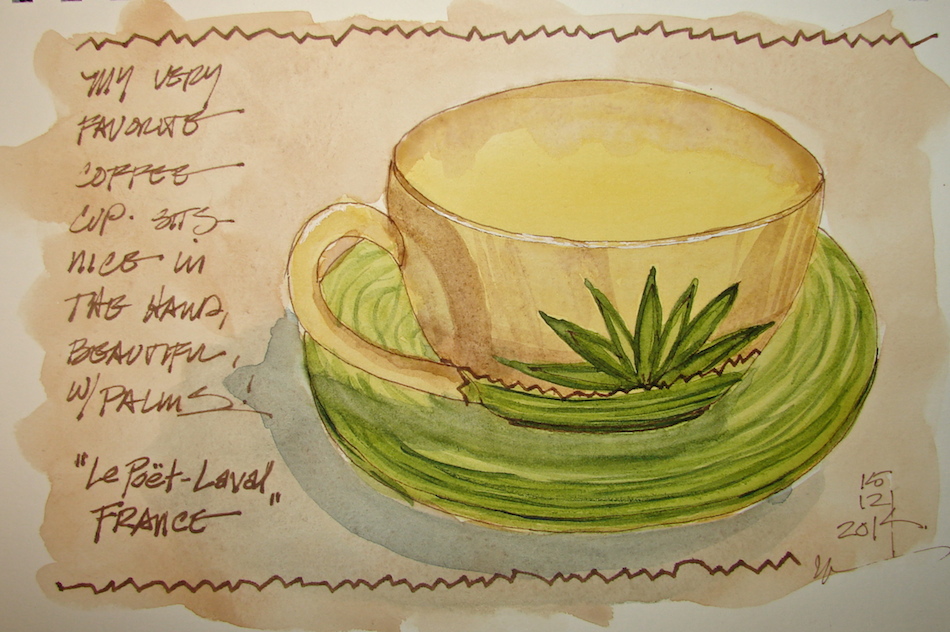 MY VERY
FAVORITE
COFFEE
CUP. SITS
NICE IN
THE HAND,
BEAUTIFUL,
W/PALMS!
"Le Poët-Laval
FRANCE"
15
12
2014